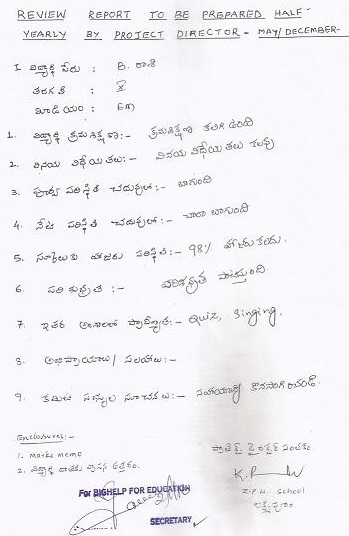 REVIEW REPORT TO BE PREPARED HALF-
YEARLY BY PROJECT DIRECTOR - MAY/DECEMBER-
I విద్యార్థి పేరు : B. రాశి
తరగతి : 8
మీడియం : EM
1. విద్యార్థి క్రమశిక్షణ:- క్రమశిక్షణ కలిగి ఉంది
2. వినయ విధేయతలు:- వినయ విధేయతలు కలవు
3. పూర్వ పరిస్థితి చదువులో:- బాగుంది
4. నేటి పరిస్థితి చదువులో:- చాలా బాగుంది
5. స్కూలుకు హాజరు పరిస్థితి:- 98% హాజరు కలదు.
6. పరిశుభ్రత :- పరిశుభ్రత పాటిస్తుంది.
7. ఇతర అంశాలలో ప్రావీణ్యత:- Quiz, Singing.
8. అభిప్రాయాలు/ సలహాలు:-
9. కమిటి సభ్యుల సూచనలు:- సహాయాన్ని కొనసాగించండి
Enclosures:-
1. Marks Memo
2. విద్యార్థి రాసిన ఉత్తరం.
ప్రాజెక్ట్ డైరెక్టర్ సంతకం.
Z.P.H. School
లక్ష్మీపురం.
For BIGHELP FOR EDUCATION
SECRETARY